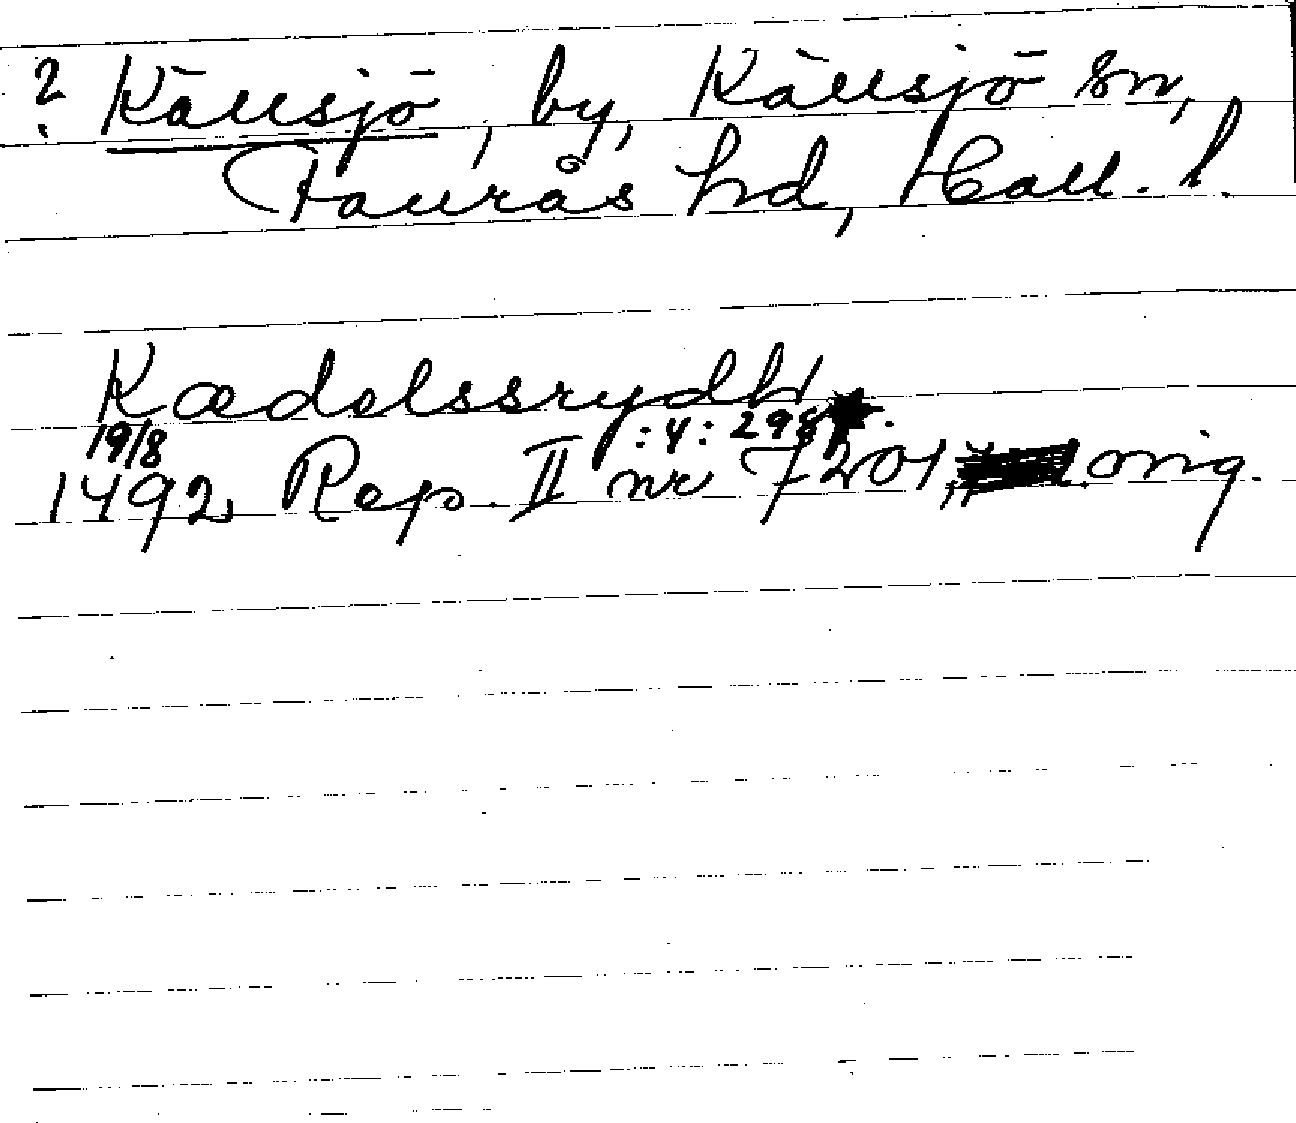 ? Källsjö, by, Källsjö sn,
Faurås hd, Hall. l.
Kædelssrydh
19/8 :4: 298.
1492 Rep. II nr 7201, orig.